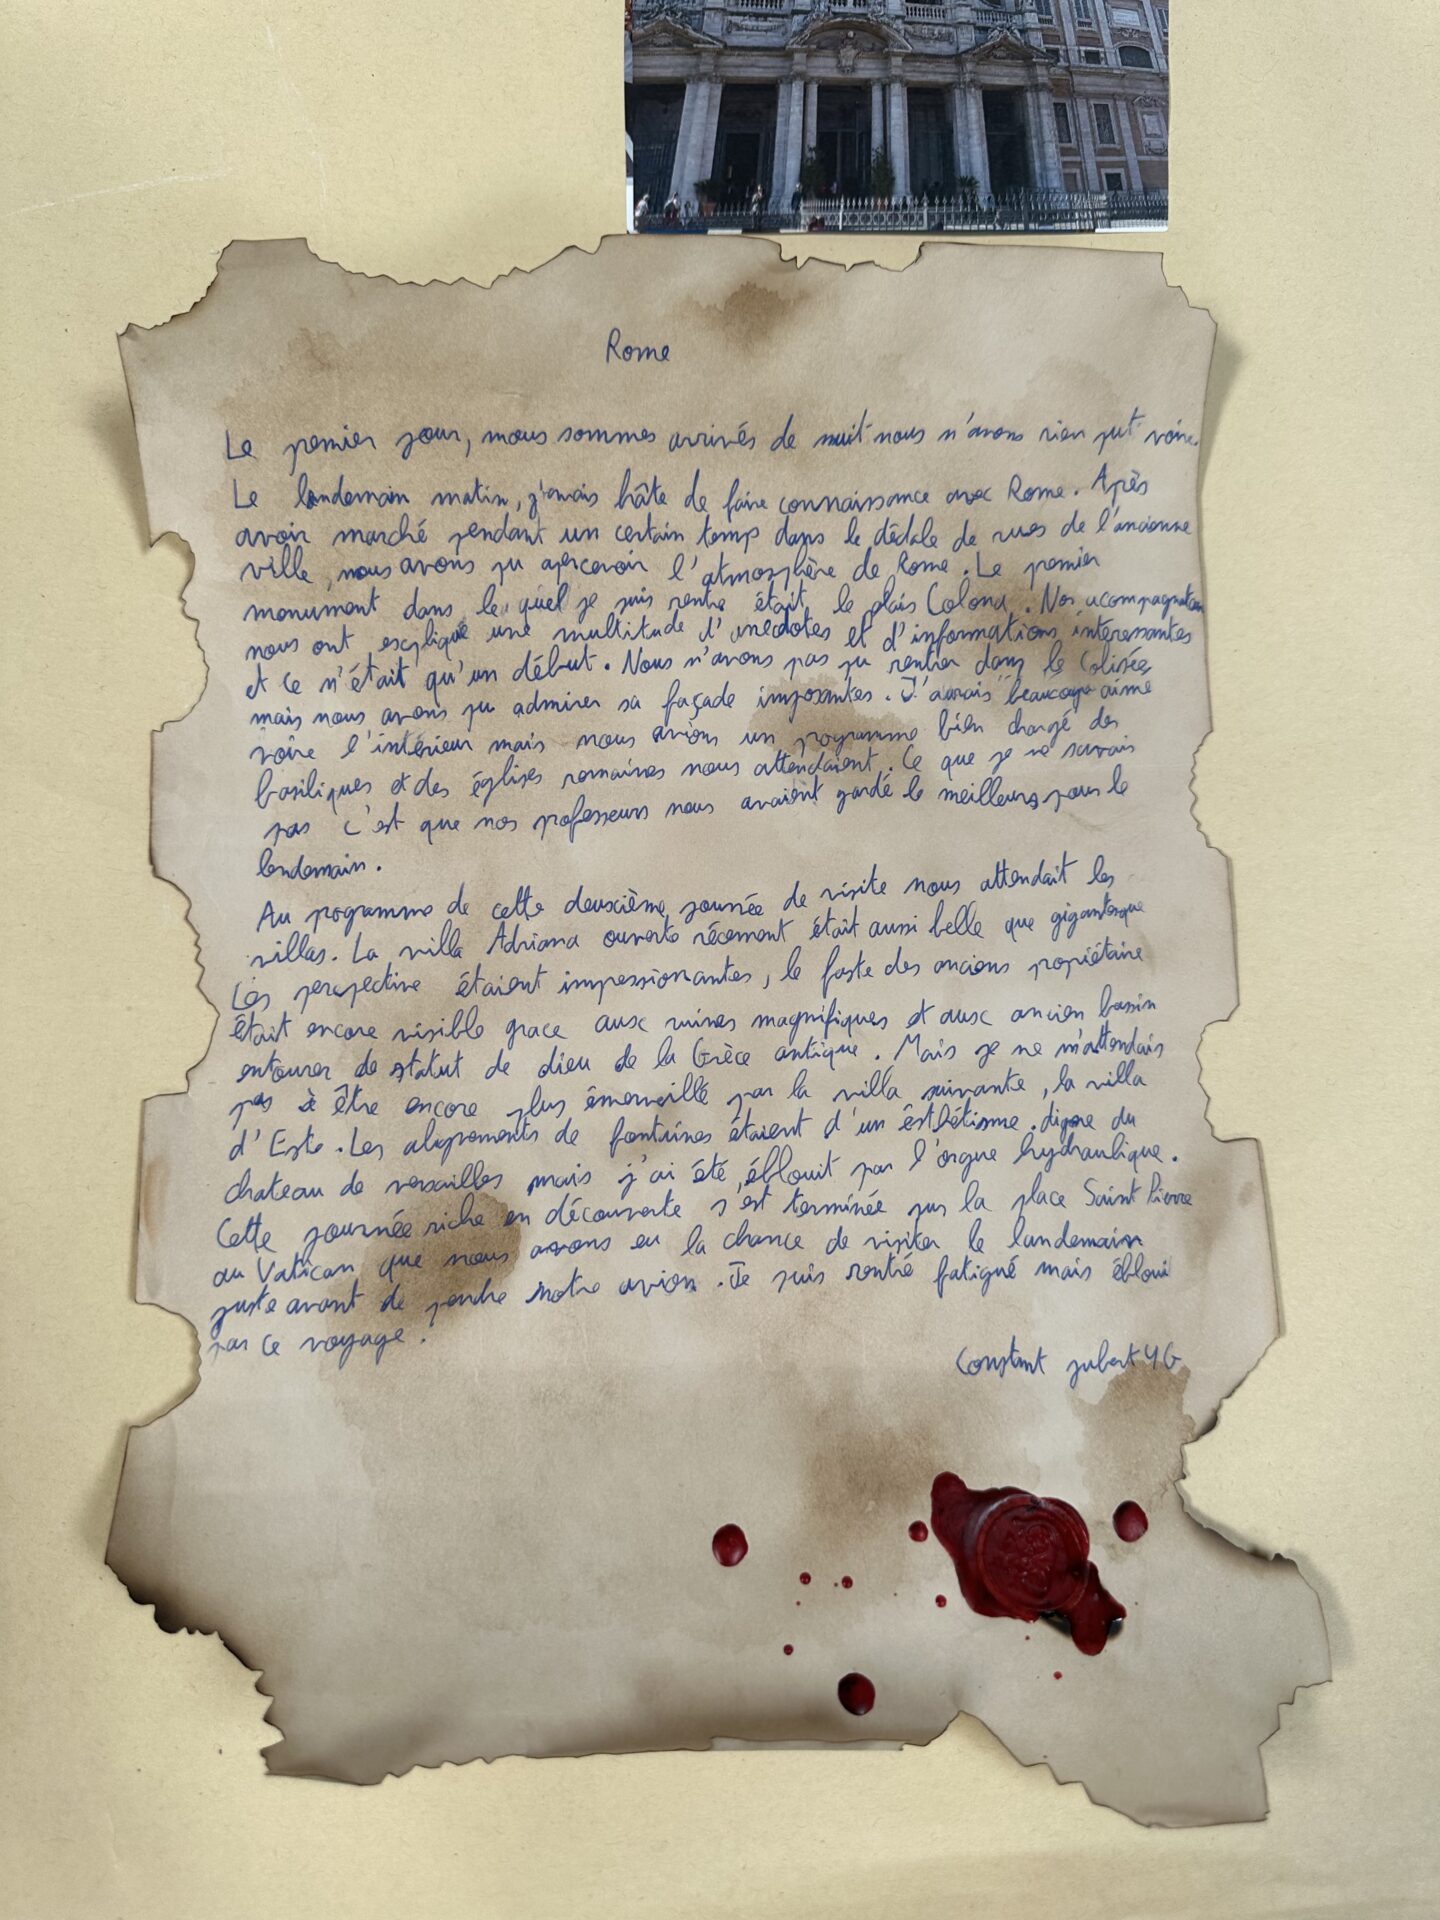 Rome
Le premier jour, nous sommes arrivés de nuit nous n'avons rien put voire.
Le lendemain matin, j'avais hâte de faire connaissance avec Rome. Après
avoir marché pendant un certain temp dans le dédale de rues de l'ancienne
ville, nous avons pu apercevoir l'atmosphère de Rome. Le premier
monument dans le quel je suis rentré était le plais Colona. Nos acompagnateurs
nous ont expliqué une multitude d'anecdotes et d'informations intéressantes
et ce n'était qu'un début. Nous n'avons pas pu rentrer dans le Colisée
mais nous avons pu admirer sa façade imposantes. J'aurais beaucoup aimé
voire l'intérieur mais nous avions un programme bien chargé des
basiliques et des églises romaines nous attendaient. Ce que je ne savais
pas c'est que nos professeurs nous avaient gardé le meilleurs pour le
lendemain.
Au programme de cette deuxième journée de visite nous attendait les
villas. La villa Adriana ouverte récement était aussi belle que gigantesque
Les perspective étaient impressionantes, le faste des anciens propriétaire
était encore visible grace aux ruines magnifiques et aux ancien bassin
entourer de statut de dieu de la Grèce antique. Mais je ne m'attendais
pas à être encore plus émerveillé par la villa suivante, la villa
d'Este. Les alignements de fontaines étaient d'un ésthétisme digne du
chateau de versailles mais j'ai été éblouit par l'orgue hydraulique.
Cette journée riche en découverte s'est terminée sur la place Saint Pierre
au Vatican que nous avons eu la chance de visiter le landemain
juste avant de prendre notre avion. Je suis rentré fatigué mais ébloui
par ce voyage.
Constant jubert 4G